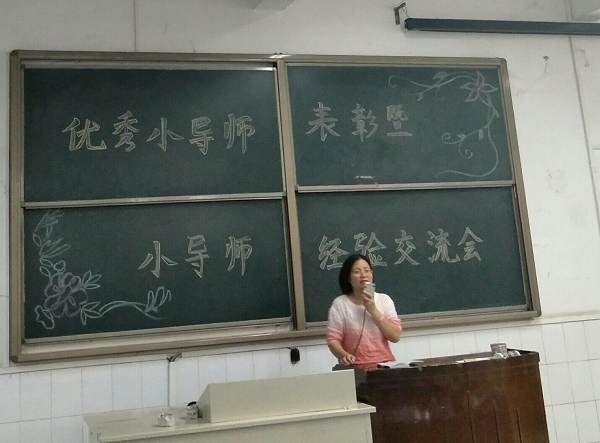 优秀小导师表彰暨
小导师经验交流会